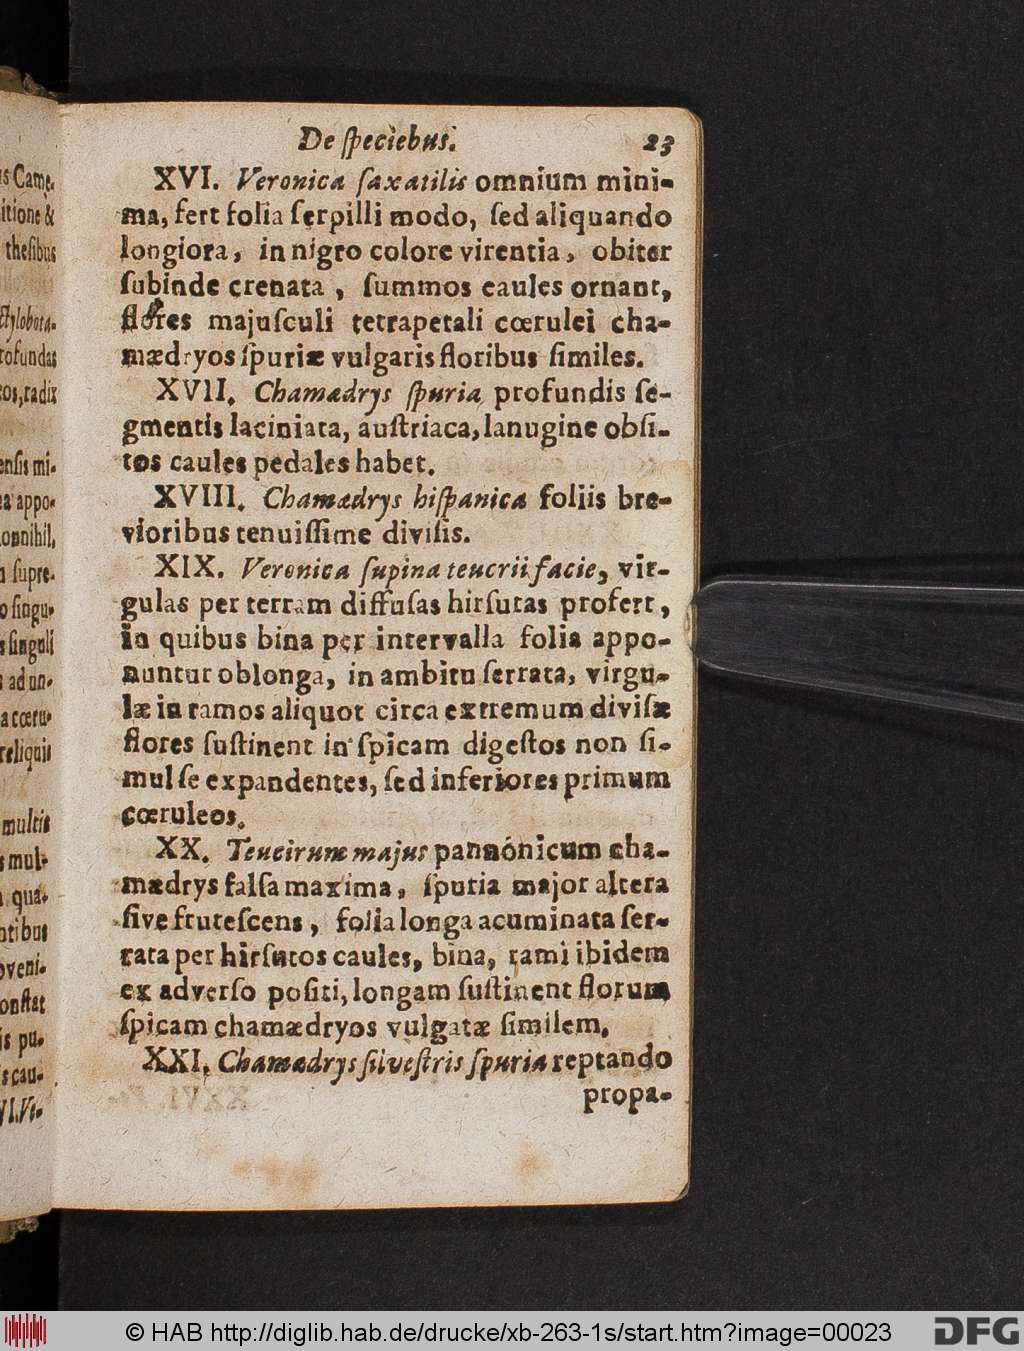 s Camę-
itione &
thesibus
ſtylobota-
rofundas
cos, radix
ensis mi-
a appo-
onnihil,
supre-
o singu-
s singuli
ad un-
a cœru-
reliquis
multis
s mul-
qua-
ntibus
oveni-
onstat
is pu-
s cau-
VI. Ve-
De ſpeciebus. 23
XVI. Veronica ſaxatilis omnium mini-
ma, fert folia ſerpilli modo, ſed aliquando
longiora, in nigro colore virentia, obiter
ſubinde crenata, ſummos caules ornant,
flores majuſculi tetrapetali cœrulei cha-
mædryos ſpuriæ vulgaris floribus ſimiles.
XVII. Chamædrys ſpuria profundis ſe-
gmentis laciniata, auſtriaca, lanugine obſi-
tos caules pedales habet.
XVIII. Chamædrys hiſpanica foliis bre-
vioribus tenuiſſime diviſis.
XIX. Veronica ſupina teucrii facie, vir-
gulas per terram diffuſas hirſutas profert,
in quibus bina per intervalla folia appo-
nuntur oblonga, in ambitu ſerrata, virgu-
læ in ramos aliquot circa extremum diviſæ
flores ſuſtinent in ſpicam digeſtos non ſi-
mul ſe expandentes, ſed inferiores primum
cœruleos.
XX. Teucirum majus pannónicum cha-
mædrys falſa maxima, ſpuria major altera
ſive fruteſcens, folia longa acuminata ſer-
rata per hirſutos caules, bina, rami ibidem
ex adverſo poſiti, longam ſuſtinent florum
ſpicam chamædryos vulgatæ ſimilem.
XXI. Chamædrys ſilveſtris ſpuria reptando
propa-
© HAB http://diglib.hab.de/drucke/xb-263-1s/start.htm?image=00023
DFG